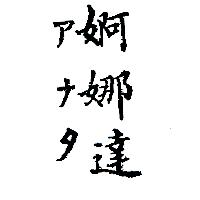 婀娜達
アナタ